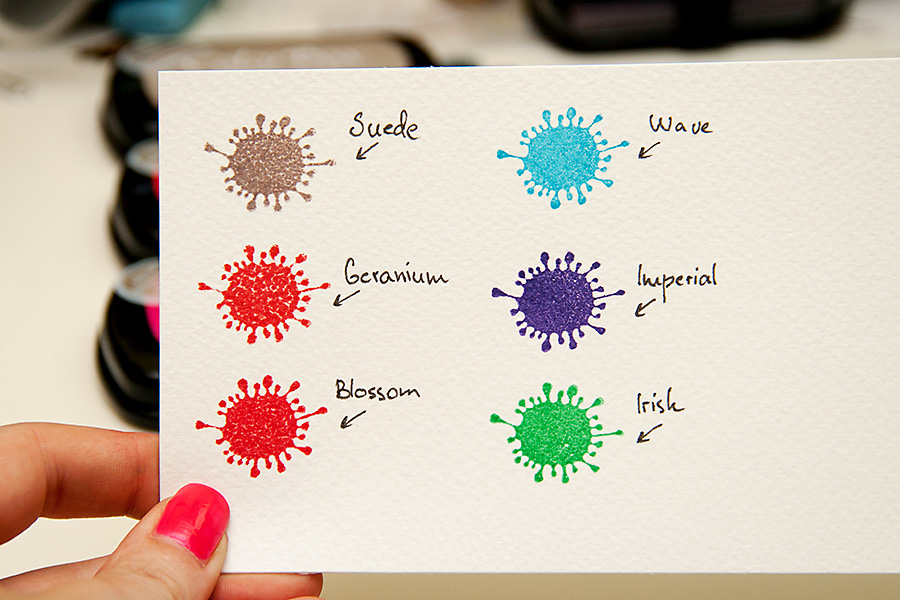 Suede
Wave
Geranium
Imperial
Blossom
Irish